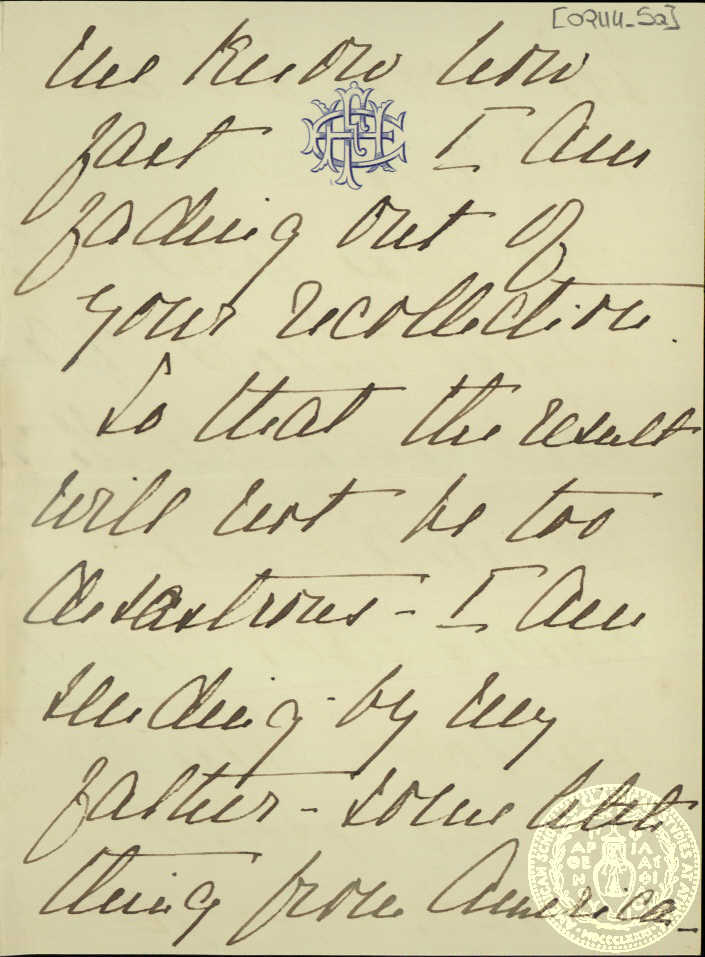 [0244_5a]
me know how
fast I am
fading out of
your recollection.
So that the result
will not be too
disastrous - I am
sending by my
father - some little
thing from America -